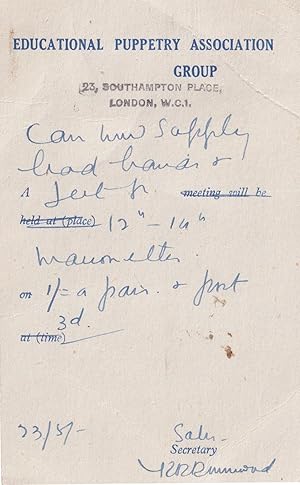 EDUCATIONAL PUPPETRY ASSOCIATION
GROUP
23, SOUTHAMPTON PLACE,
LONDON, W.C.1.
Can now supply
lead hands &
A feet for meeting will be
held at (place) 12" - 14"
marionettes.
on 1/= a pair. & post
3d.
at (time)
23/5/-
Sales
Secretary